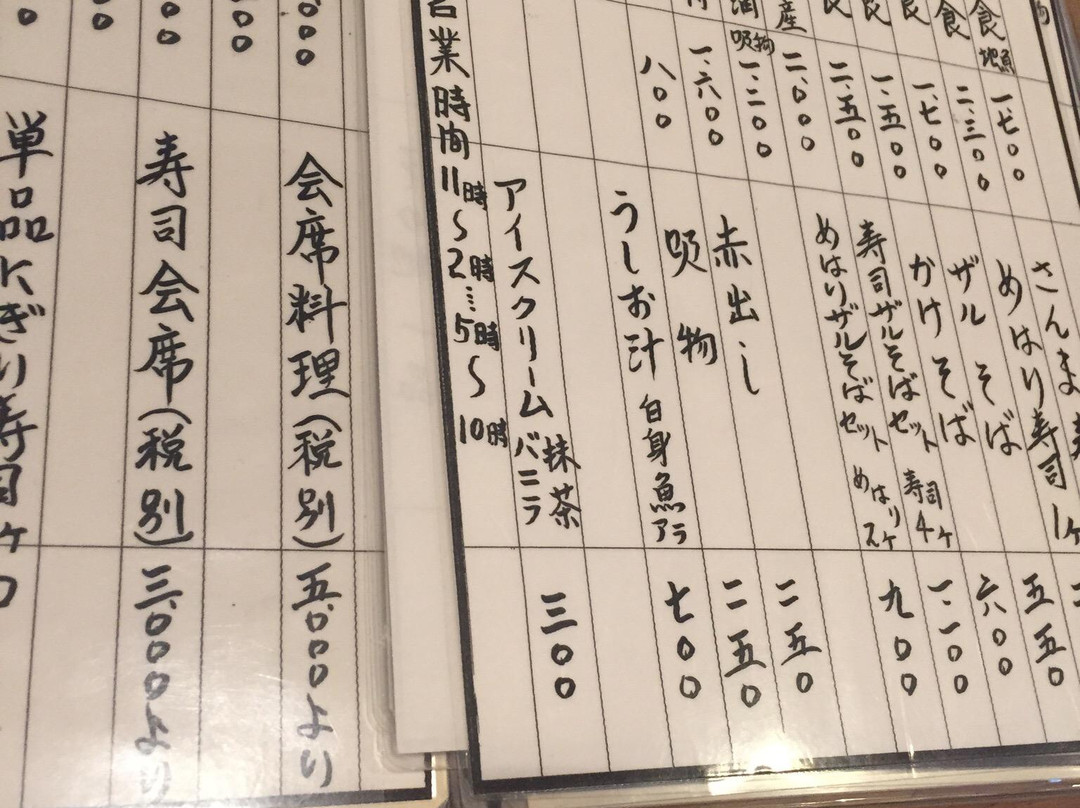 さんま寿
めはり寿司 1ヶ 五五〇
ザルそば 六〇〇
かけそば
寿司ザルそばセット 寿司4ヶ 一、一〇〇
めはりザルそばセット めはり 九〇〇
赤出し 二五〇
吸物 二五〇
うしお汁 白身魚アラ 七〇〇
アイスクリーム 抹茶 バニラ 三〇〇
業時間 11時〜2時…5時〜10時
食 地魚 一、七〇〇
食 二、三〇〇
一、七〇〇
一、五〇〇
二、五〇〇
産 二、〇〇〇
吸物 一、二〇〇
一、六〇〇
八〇〇
会席料理(税別) 五、〇〇〇より
寿司会席(税別) 三、〇〇〇より
単品にぎり寿司